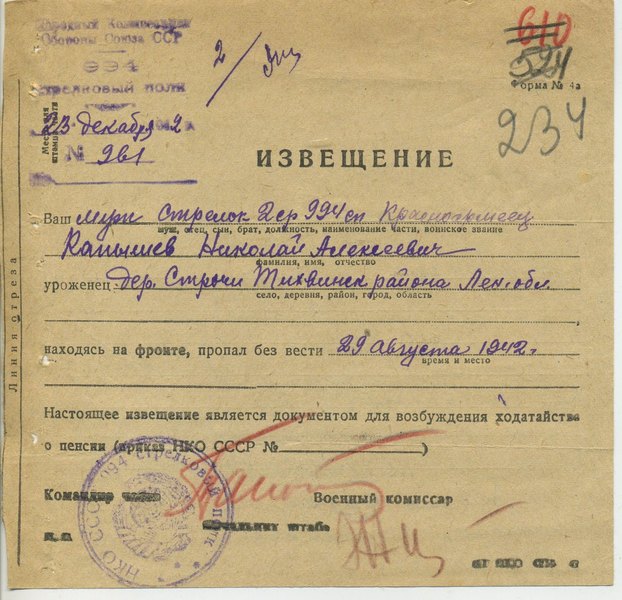 Народный Комиссариат
Обороны Союза ССР
994
стрелковый полк
23 декабря 2
№ 961
2/
610
524
Форма № 4а
234
ИЗВЕЩЕНИЕ
Ваш муж Стрелок 2 ср 994 сп Красноармеец
муж, отец, сын, брат, должность, наименование части, воинское звание
Капышев Николай Алексеевич
фамилия, имя, отчество
уроженец дер. Строчи Тихвинск района Лен. обл.
село, деревня, район, город, область
находясь на фронте, пропал без вести 29 августа 1942 г
время и место
Настоящее извещение является документом для возбуждения ходатайства
о пенсии (приказ НКО СССР № )
Командир части Военный комиссар
Начальник штаба
М. П.
НКО СССР 994 стрелковый полк
Линия отреза